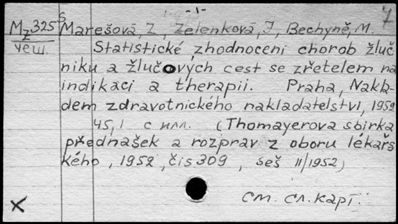 -1-
7
M₂325 Marešová, Z, Zelenková, J, Bechyně, M.
чеш. Statistické zhodnocení chorob žluč
niku a žlučových cest se zřetelem na
indikaci a therapii. Praha, Nakla-
dem zdravotnického nakladatelství, 1952
45,1 с илл. (Thomayerova sbirka
přednášek a rozprav z oboru lékařs
kého, 1952, čis 309, seš 11/1952)
см. сл. карт.